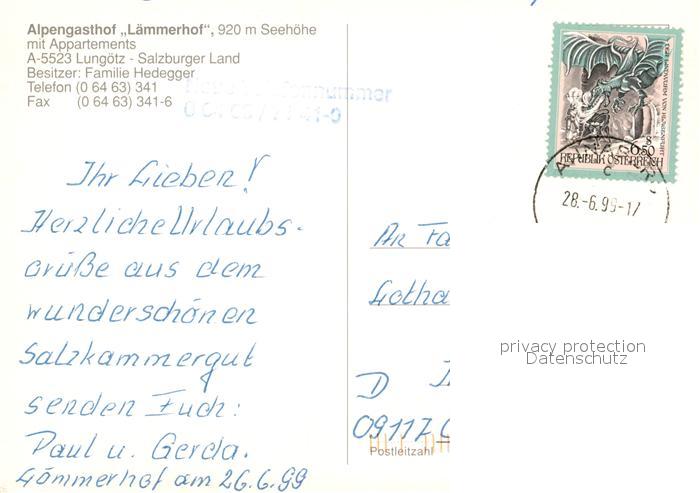 Alpengasthof „Lämmerhof“, 920 m Seehöhe
mit Appartements
A-5523 Lungötz - Salzburger Land
Besitzer: Familie Hedegger
Telefon (0 64 63) 341
Fax (0 64 63) 341-6
Ihr Lieben!
Herzliche Urlaubs-
grüße aus dem
wunderschönen
Salzkammergut
senden Euch:
Paul u. Gerda.
Lämmerhof am 26.6.99
S 6.50
REPUBLIK ÖSTERREICH
28.-6.99-17
An Fa
Lotha
D
09117
Postleitzahl
privacy protection
Datenschutz